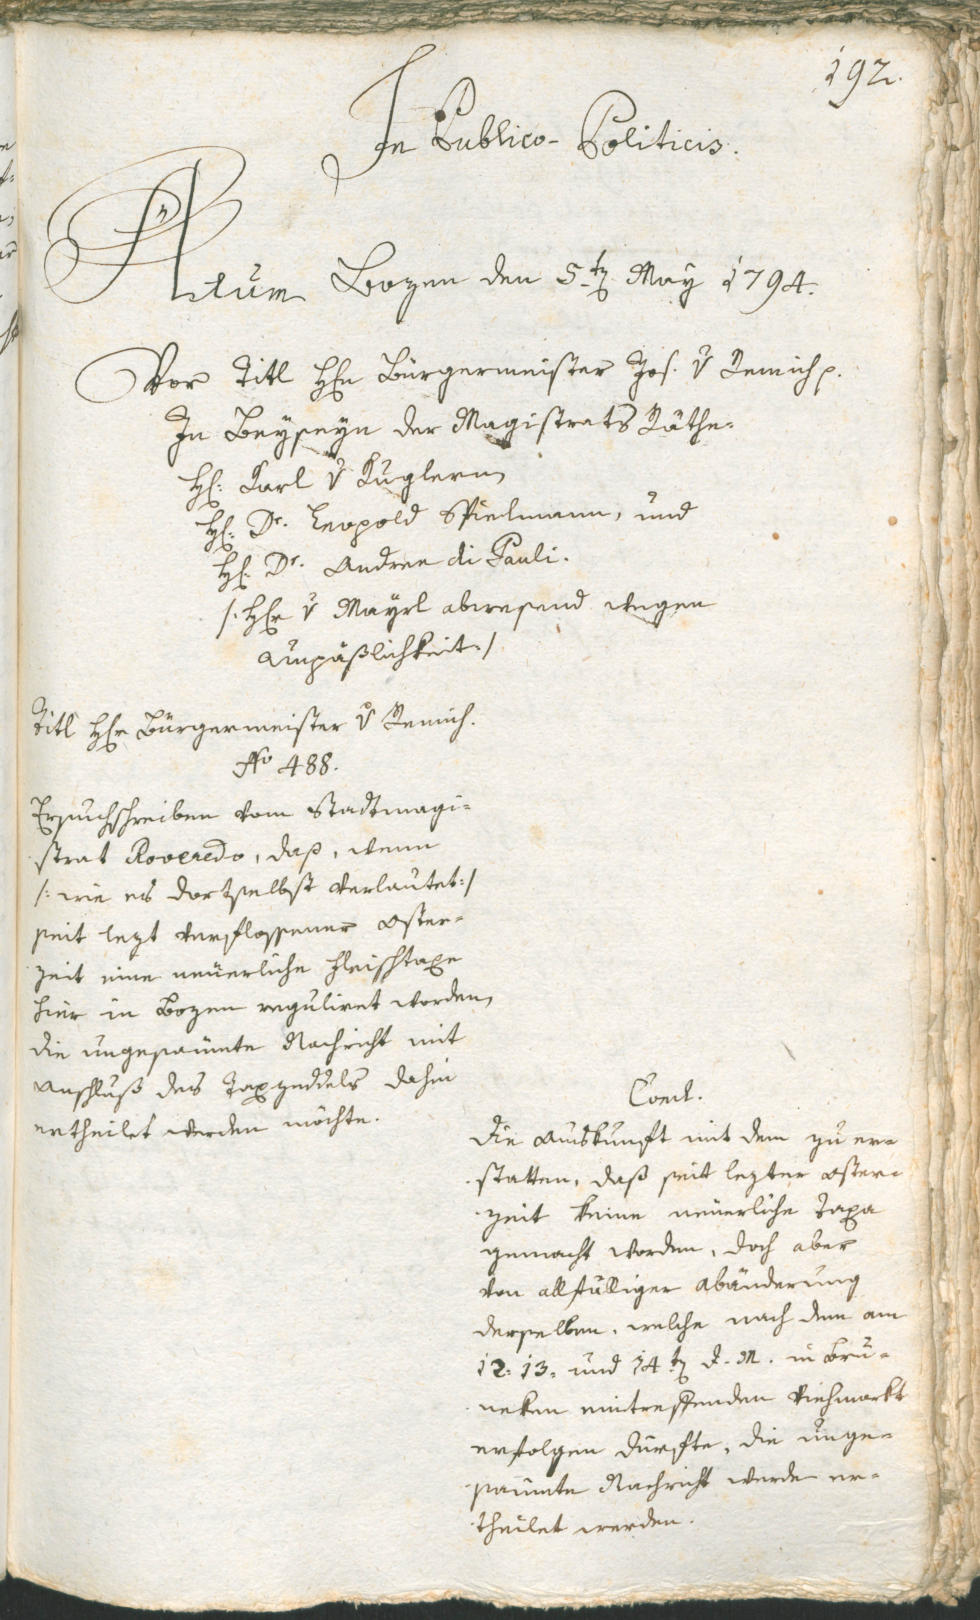 192.
In Publico-Politicis.
Actum Bozen den 5.t May 1794.
Vor Titl Hn Bürgermeister Jos. v Remich p.
In Beyseyn der Magistrats Räthe:
H: Carl v Kuglern
H: Dr. Leopold Spielmann, und
H: Dr. Andree di Pauli.
/: Hr v Mayrl abwesend wegen
Unpäßlichkeit :/
Titl Hr Bürgermeister v Remich.
No 488.
Ersuchschreiben vom Stadtmagi=
strat Roveredo, daß, wenn
/: wie es dortselbst verlautet :/
seit lezt verflossener Oster=
zeit eine neuerliche Fleischtaxe
hier in Bozen reguliret worden,
die ungesaumte Nachricht mit
Anschluß des Taxzeddels dahin
ertheilet werden möchte.
Concl.
Die Auskunft mit dem zu er=
statten, daß seit lezter Oster=
zeit keine neuerliche Taxa
gemacht worden, doch aber
von allfälliger Abänderung
derselben, welche nach dem am
12. 13. und 14t d. M. in Bru=
neken eintreffenden Viehmarkt
erfolgen dürfte, die unge=
saumte Nachricht werde er=
theilet werden.